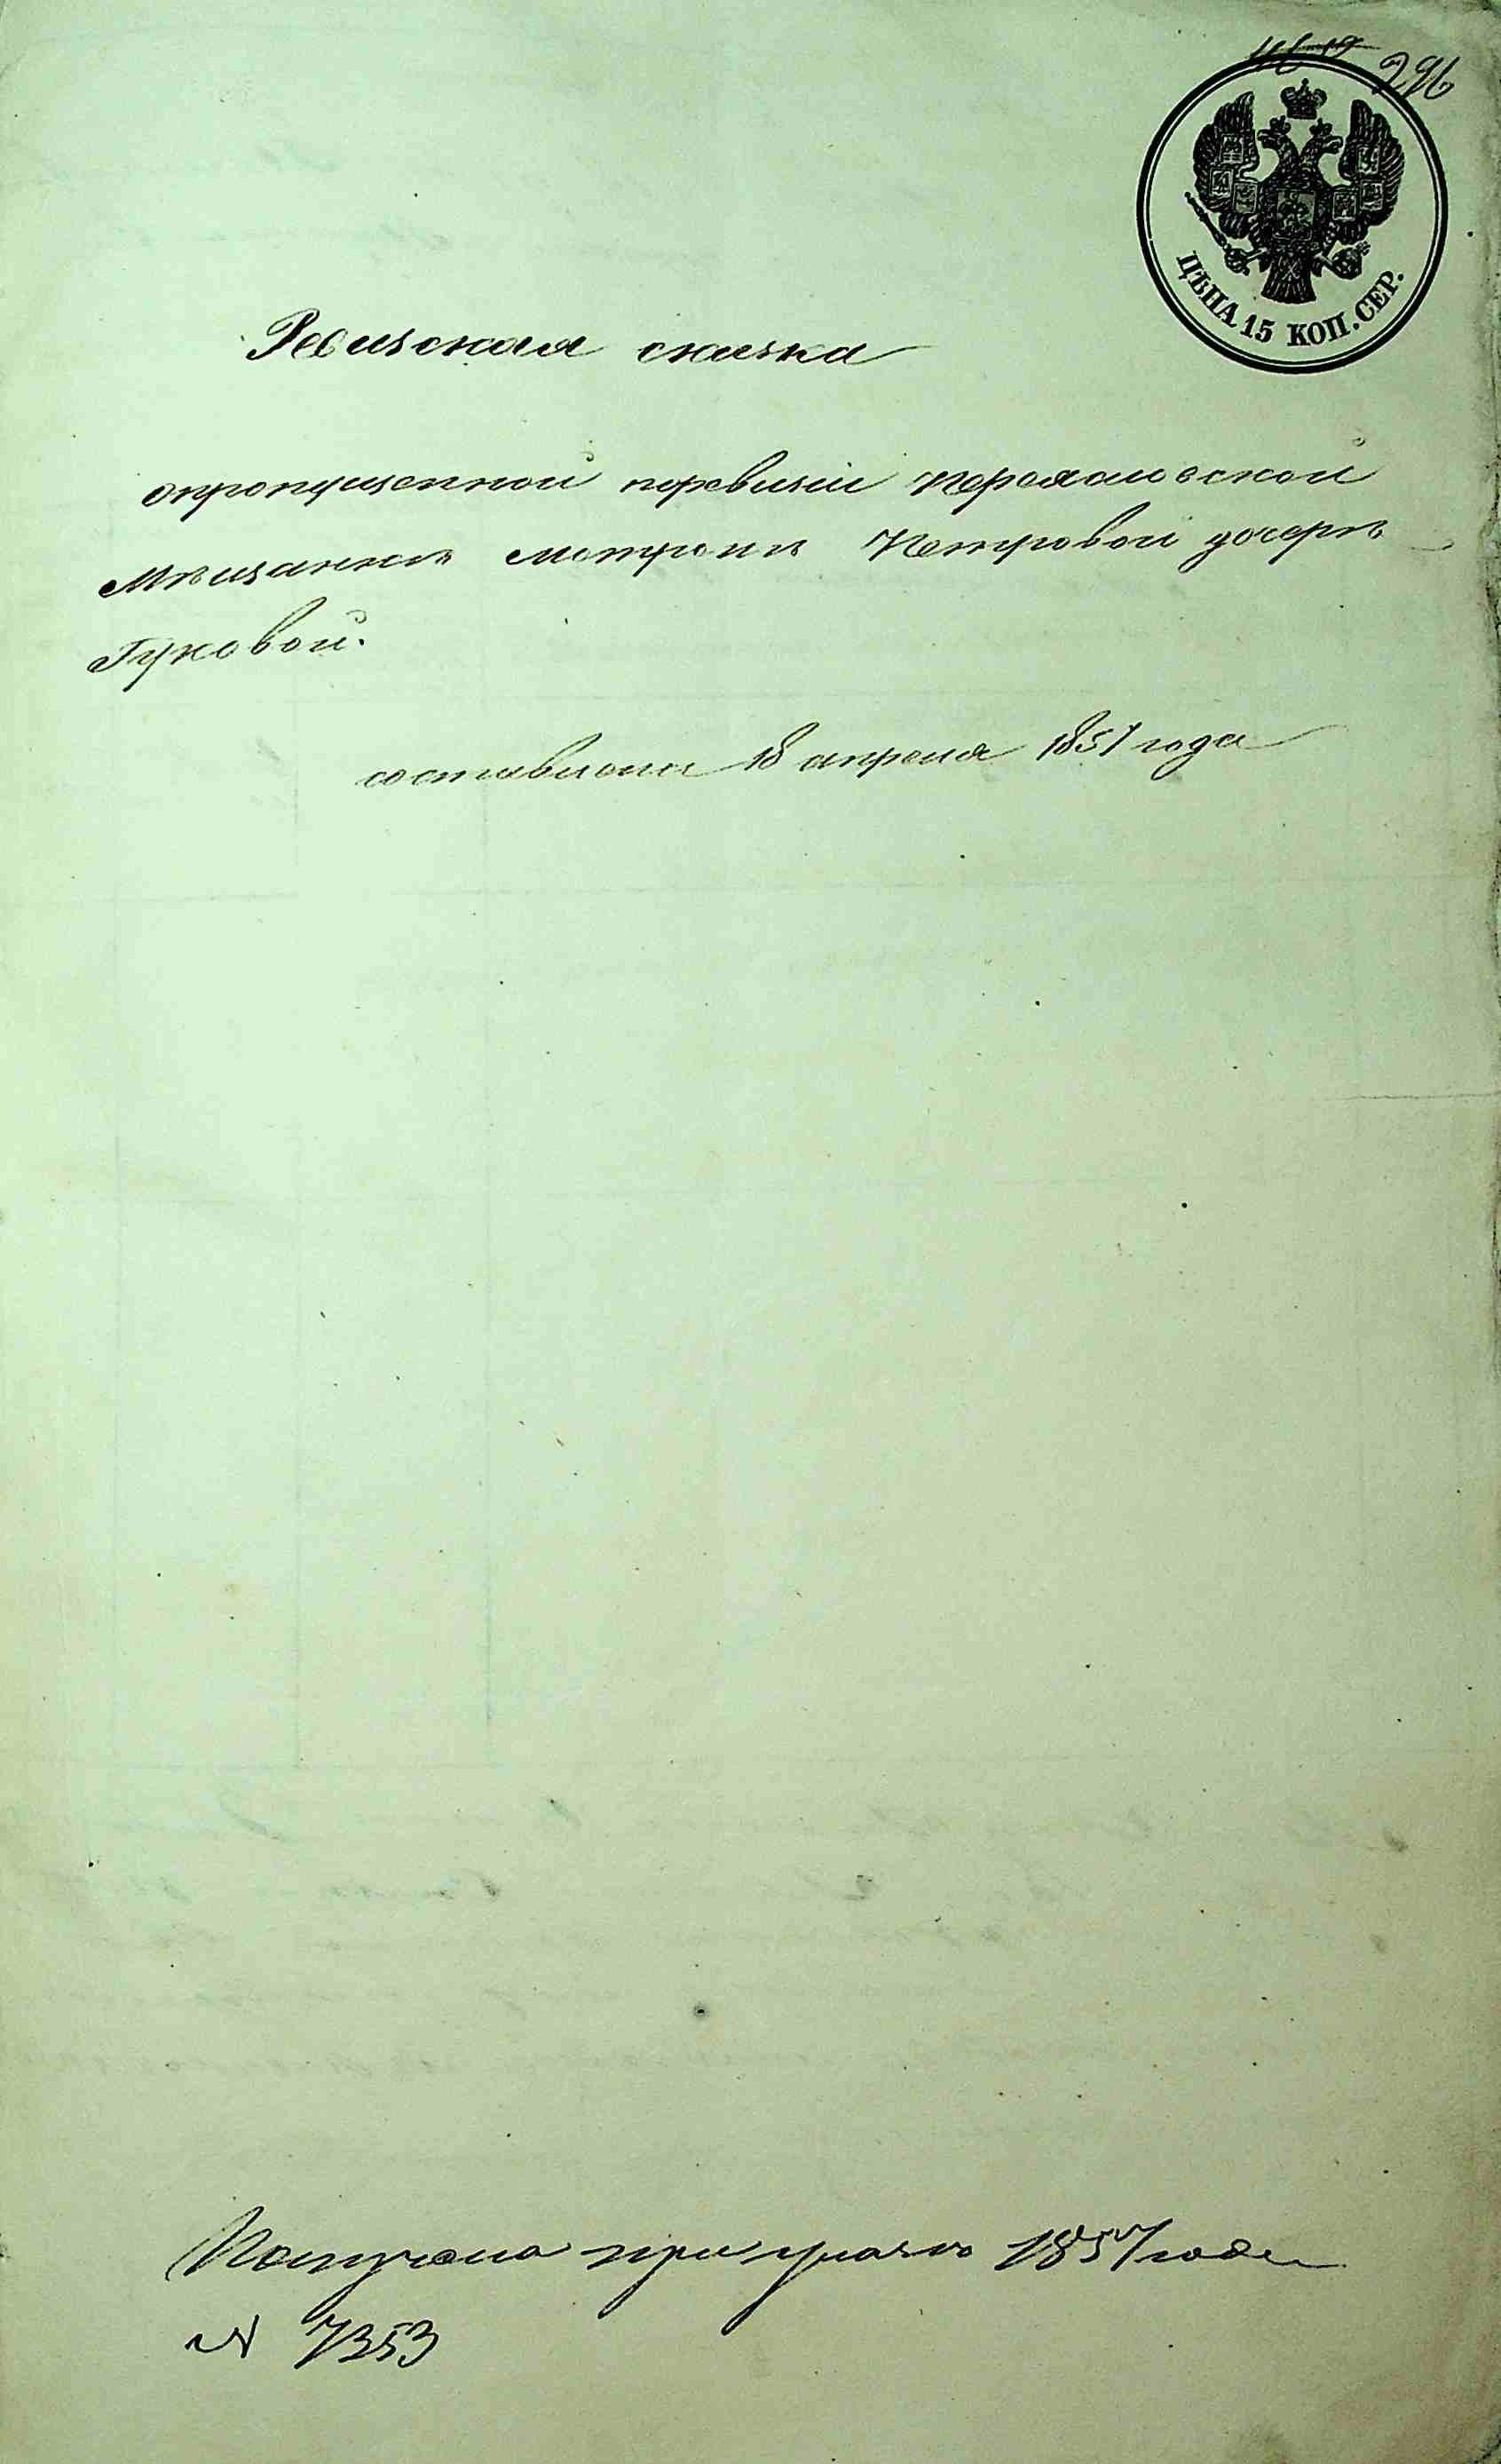 296
ЦѢНА 15 КОП. СЕР.
Ревизская сказка
опропущенной поревизіи Переяславской
Мѣщанкѣ Мотронѣ Петровой дочерѣ
Гуковой.
составлена 18 апреля 1857 года
Получена при указѣ 1857 года
№ 7353